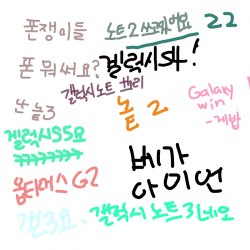 폰쟁이들
노트2 쓰고있어요 22
폰 뭐써요?
겔럭시S4!
갤럭시노트 쓰리
난 놑3
놑2
Galaxy
win
-계밥
겔럭시S5요
ㅋㅋㅋㅋㅋㅋㅋ
옵티머스G2
베가
아이언
갠3요
갤럭시노트3네오